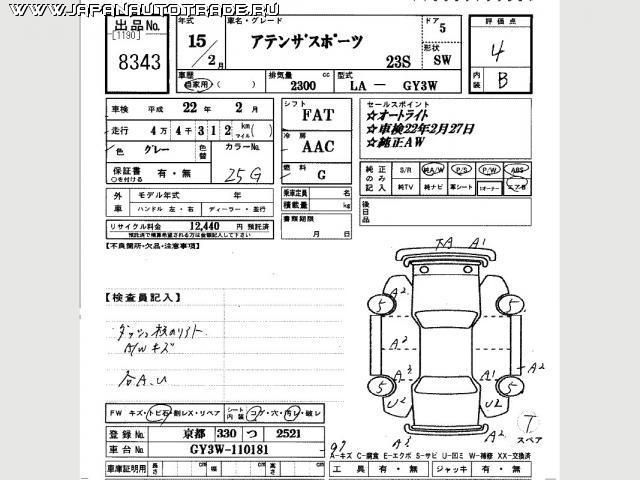 WWW.JAPANAUTOTRADE.RU
出品No.
[1190]
8343
年式
15
2月
車名・グレード
アテンザスポーツ
23S
ドア
5
形状
SW
評価点
4
内装
B
車歴
自家用・( )
排気量
2300 cc
型式
LA - GY3W
車検 平成 22年 2月
走行 4万 4千 3 1 2 km マイル ( )
色 グレー
色替
カラーNo.
25G
保証書 ◯を付ける 有・無
シフト
FAT
冷房
AAC
燃料
G
セールスポイント
☆オートライト
☆車検22年2月27日
☆純正AW
純正のみ記入
S/R 純A/W P/S P/W ABS
純TV 純ナビ 革シート 1オーナー エアB
外車
モデル年式 年
ハンドル 左・右 ディーラー・並行
乗車定員 名
積載量 kg
後日品
リサイクル料金 12,440 円 預託済
預託済で精算希望される方は金額記入して下さい
書類期限
月 日
【不良箇所・欠品・注意事項】
【検査員記入】
A/Wキズ
各A.U
FW キズ・トビ石・割レX・リペア
シート内装
コゲ・穴・汚レ・破レ
登録No. 京都 330 つ 2521
車台No. GY3W-110181
車庫証明用 長さ cm 幅 cm 高さ cm
A1
A2
5
5
A2
A2
A2
A3
A1
5
5
U2
U2
A3
T
スペア
A-キズ C-腐食 E-エクボ S-サビ U-凹ミ W-補修 XX-交換済
工具 有・無 ジャッキ 有・無